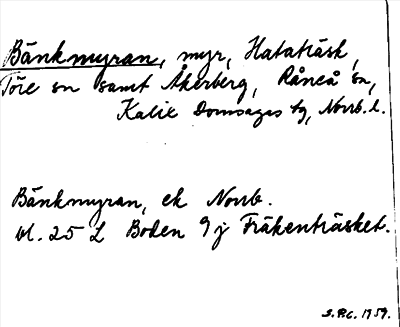 Bänkmyran, myr, Hataträsk,
Töre sn samt Åkerberg, Råneå sn,
Kalix Domsagas tg, Norrb. l.
Bänkmyran, ek Norrb.
bl. 25 L Boden 9 j Fräkenträsket.
S.P.C. 1959.